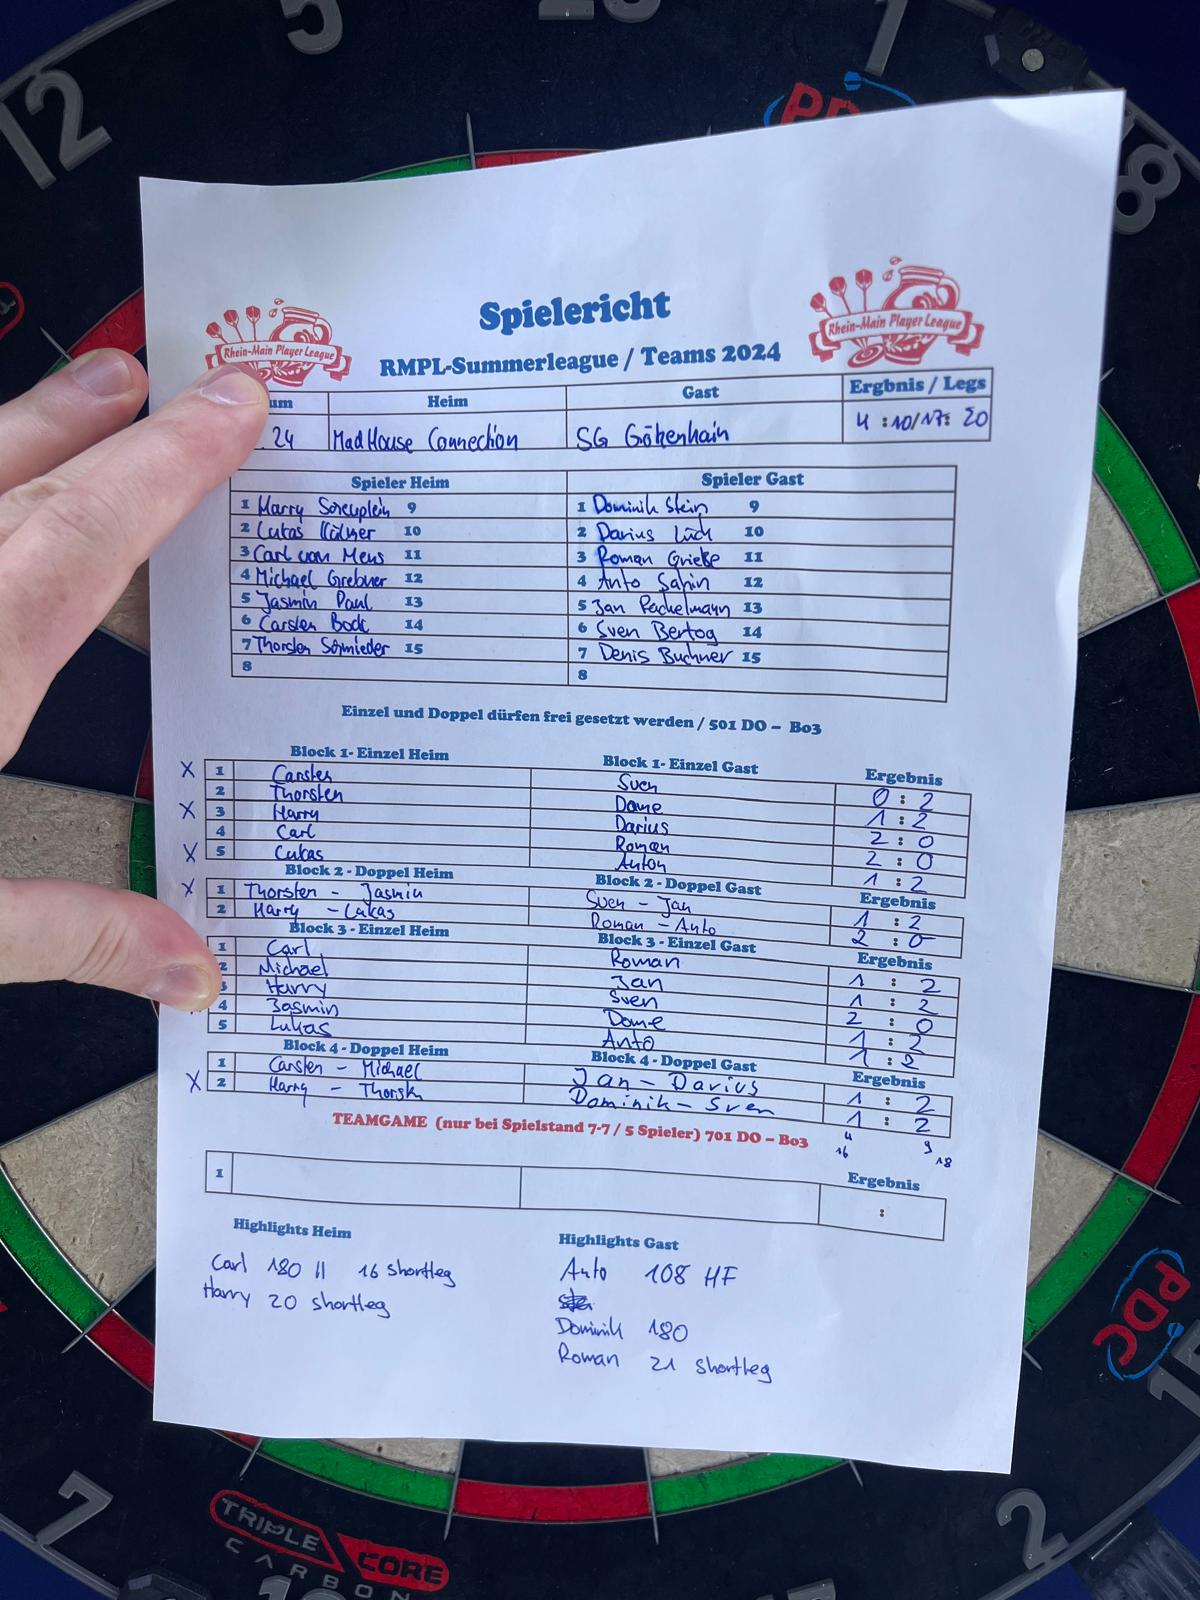 5
1
12
18
PDC
Rhein-Main Player League
Spielericht
Rhein-Main Player League
RMPL-Summerleague / Teams 2024
um Heim Gast Ergbnis / Legs
. 24 MadHouse Connection SG Götzenhain 4 : 10 / 17 : 20
Spieler Heim Spieler Gast
1 Harry Scheuplein 9 1 Dominik Stein 9
2 Lukas 10 2 Darius 10
3 Carl van Mens 11 3 Roman 11
4 Michael Grebner 12 4 Anto Sahin 12
5 Jasmin Paul 13 5 Jan Packelmann 13
6 Carsten Bock 14 6 Sven Bertog 14
7 Thorsten Schmieder 15 7 Denis Buchner 15
8 8
Einzel und Doppel dürfen frei gesetzt werden / 501 DO – Bo3
Block 1- Einzel Heim Block 1- Einzel Gast Ergebnis
X 1 Carsten Sven 0 : 2
2 Thorsten Dome 1 : 2
X 3 Harry Darius 2 : 0
4 Carl Roman 2 : 0
X 5 Lukas Anton 1 : 2
Block 2 - Doppel Heim Block 2 - Doppel Gast Ergebnis
X 1 Thorsten - Jasmin Sven - Jan 1 : 2
2 Harry - Lukas Roman - Anto 2 : 0
Block 3 - Einzel Heim Block 3 - Einzel Gast Ergebnis
1 Carl Roman 1 : 2
2 Michael Jan 1 : 2
3 Harry Sven 2 : 0
4 Jasmin Dome 1 : 2
5 Lukas Anto 1 : 2
Block 4 - Doppel Heim Block 4 - Doppel Gast Ergebnis
1 Carsten - Michael Jan - Darius 1 : 2
X 2 Harry - Thorsten Dominik - Sven 1 : 2
TEAMGAME (nur bei Spielstand 7-7 / 5 Spieler) 701 DO – Bo3
4 9
16 18
Ergebnis
1 :
Highlights Heim Highlights Gast
Carl 180 II 16 shortleg Anto 108 HF
Harry 20 shortleg
Dominik 180
Roman 21 shortleg
PDC
15
7
2
TRIPLE CORE
CARBON